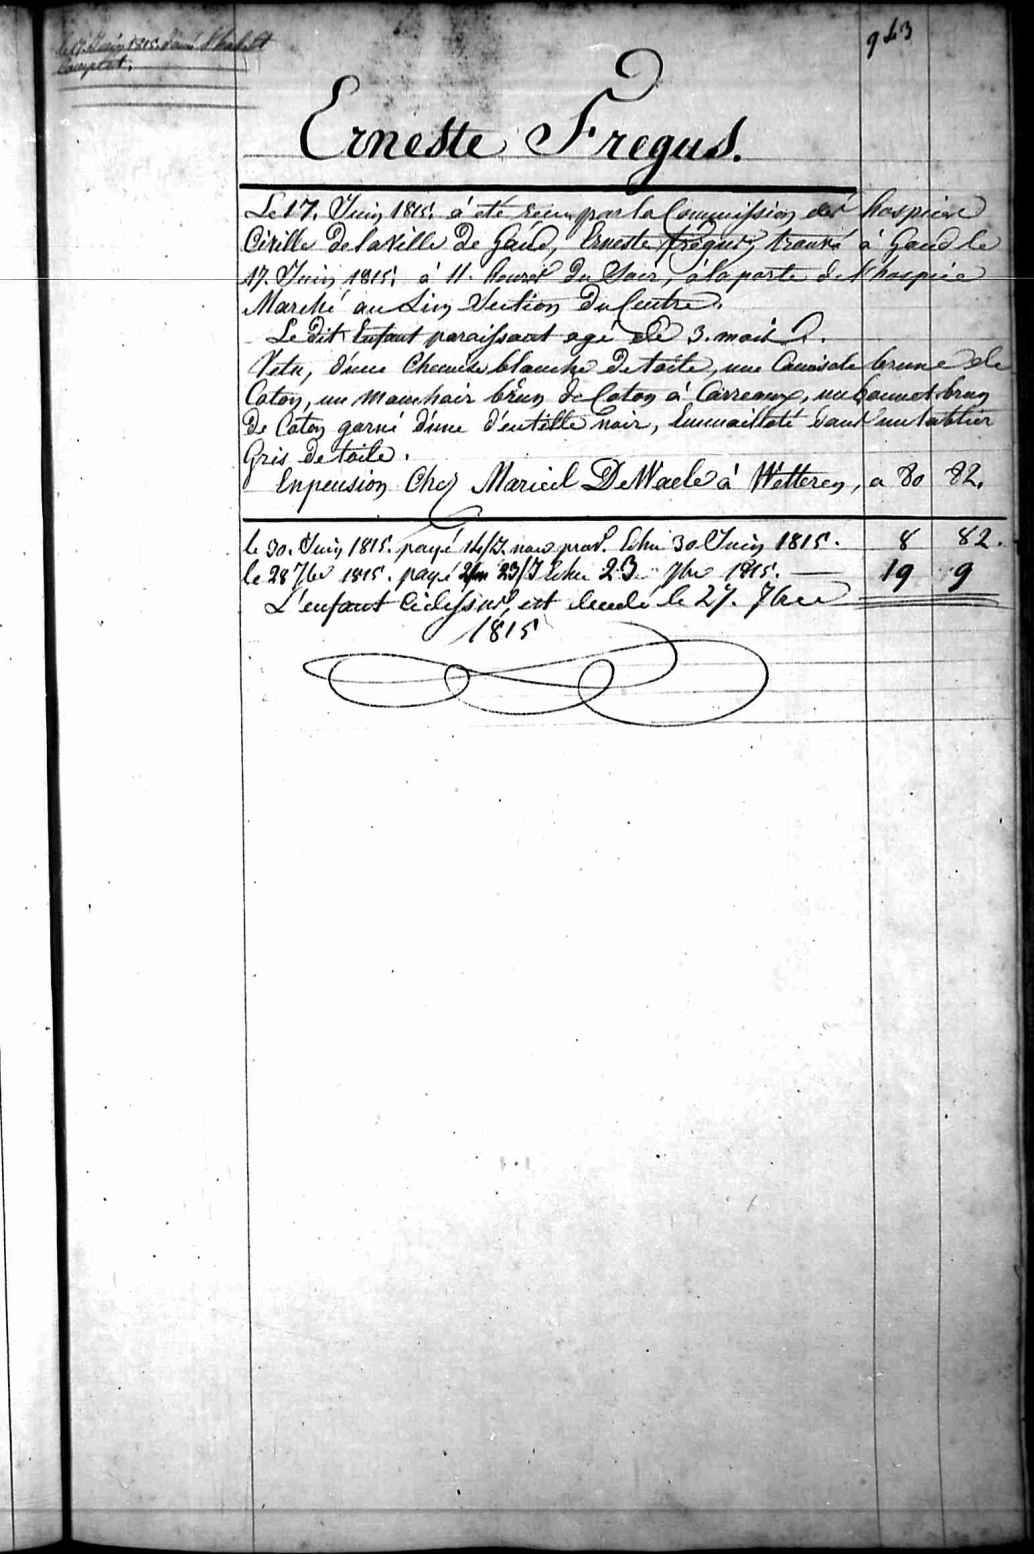 943
le 17. Juin 1815. donné l'habit
Complet.
Erneste Fregus.
Le 17. Juin 1815. à été reçu par la Commission des hospices
Civille de la Ville de Gand, Erneste Fregus, trouvé à Gand le
17. Juin 1815, à 11. heures du Soir, à la porte de l'hospice
Marché au Lin Section Du Centre.
Le dit Enfant paraissant agé de 3. mois.
Vetu, d'une Chemise blanche de toile, une Camisole brune de
Coton, un Mouchoir brun de Coton à Carreaux, un bonnet brun
de Coton garni d'une d'entelle noir, Emmailloté dans un tablier
Gris de toile.
En pension Chez Marie DeWaele à Wetteren, a 80 82.
le 30. Juin 1815. payé 14/J. Echu 30 Juin 1815. 8 82.
le 28 7bre 1815. payé 23/J Echu 23 7bre 1815. 19 9
L'enfant cidessus, est decedé le 27. 7bre
1815